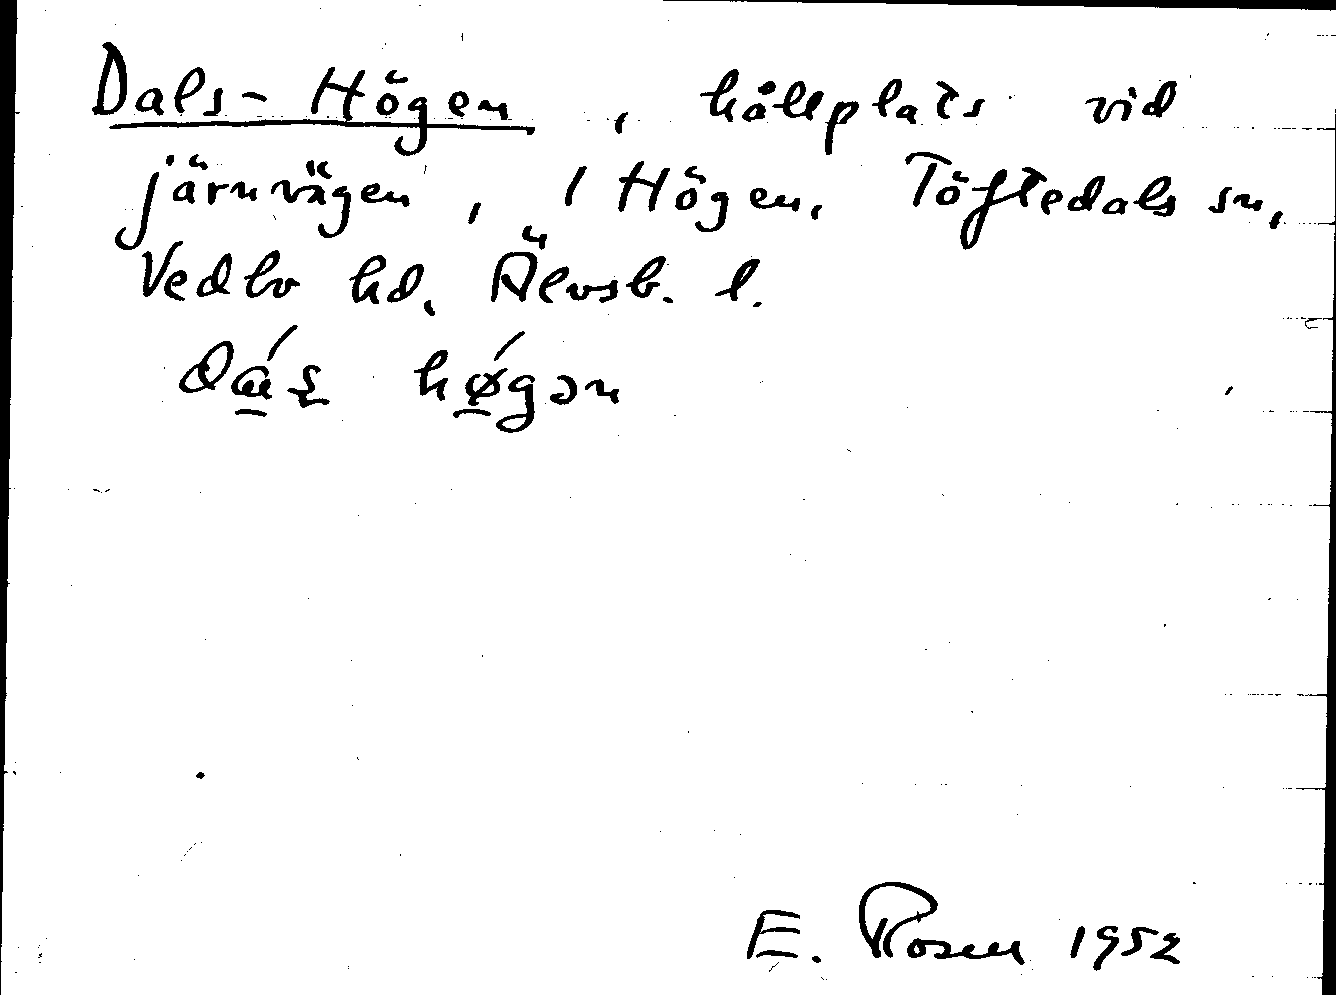 Dals-Högen, hållplats vid
järnvägen, 1 Högen, Töftedals sn,
Vedbo hd. Älvsb. l.
høgən
E. Rosen 1952